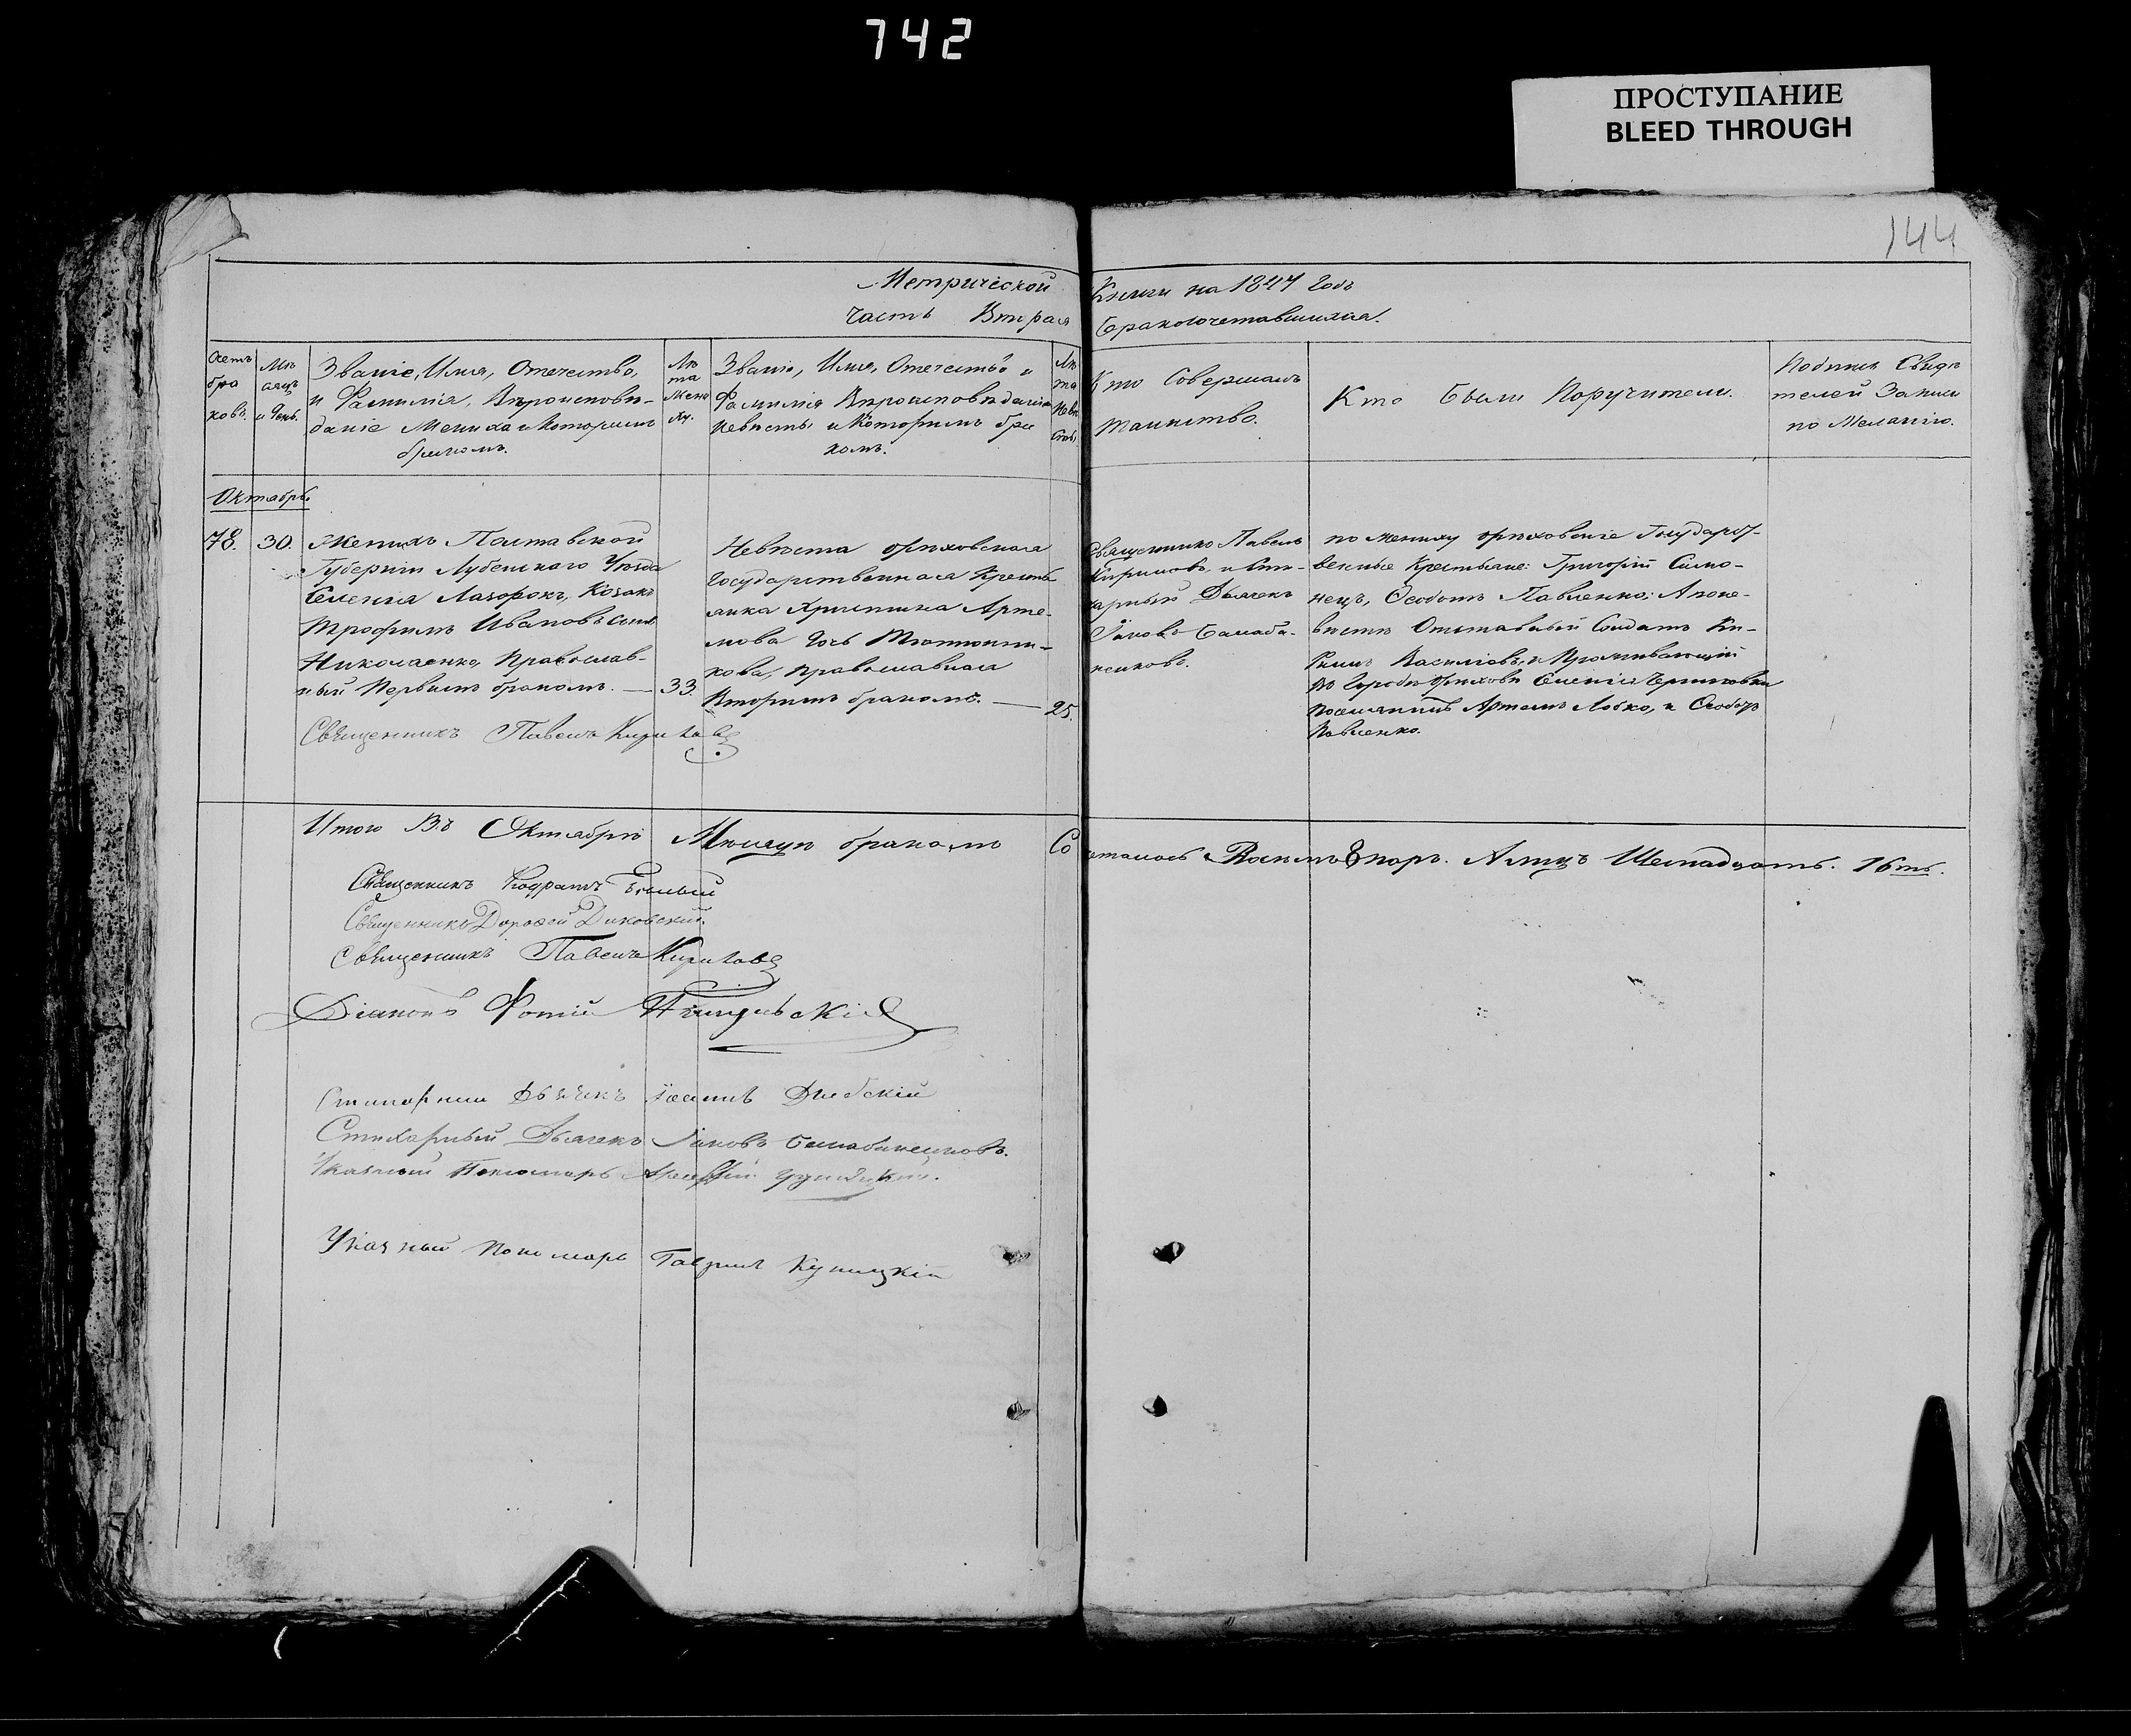 742
ПРОСТУПАНИЕ
BLEED THROUGH
144
Метрической
Книги на 1847 Годъ
Часть Вторая
бракосочетавшихся.
Счетъ браковъ.
Мѣсяцъ и День.
Званіе, Имя, Отечество,
и Фамилія, Вѣроисповѣ-
даніе Жениха и Которимъ
бракомъ.
Лѣта Жениха.
Званіе, Имя, Отечество и
Фамилія Вѣроисповѣданіе
Невѣсты и Которимъ бра
комъ.
Лѣта Невѣсты.
Кто Совершалъ
Таинство.
Кто Были Поручители.
Подпись Свидѣ
телей Записи
по Желанію.
Октябрь
78.
30.
Женихъ Полтавской
Губерніи Лубенскаго Уѣзда
Селенія Лазорокъ, Козакъ
Трофимъ Ивановъ Сынъ
Николаенко, Православ-
ный Первымъ бракомъ. — 33.
Священникъ Павелъ Кириловъ
Невѣста орѣховская
Государственная Крестья
анка Христина Арте-
мова Дочь
кова, православная
Вторымъ бракомъ. — 25.
Священникъ Павелъ
Кириловъ и Сти-
харный Дьячекъ
Іаковъ Балаба-
ненковъ.
по жениху орѣховскіе Государст-
венные Крестьяне: Григорій Симо-
нецъ, Ѳеодотъ Павленко; А по не-
вѣсте Отставный Солдатъ Ки-
рилъ Василіовъ, и Проживающій
въ Городѣ Орѣховѣ Селенія Черниговки
поселянинъ Артемъ Лобко, и Ѳеодотъ
Павленко.
Итого Въ Октябрѣ Мѣсяцѣ бракомъ Со
еталось Восемь 8 паръ. А лицъ Шеснадцать. 16ть.
Священникъ Кодратъ Бѣлый
Священникъ Дороѳей Диковскій.
Священникъ Павелъ Кириловъ
Діаконъ Фотій
Стихарный Дьячекъ Іоаннъ
Стихарный Дьячекъ Іаковъ Балабаненковъ.
Указный Пономарь
Указный Пономарь Гавриилъ Куницкій